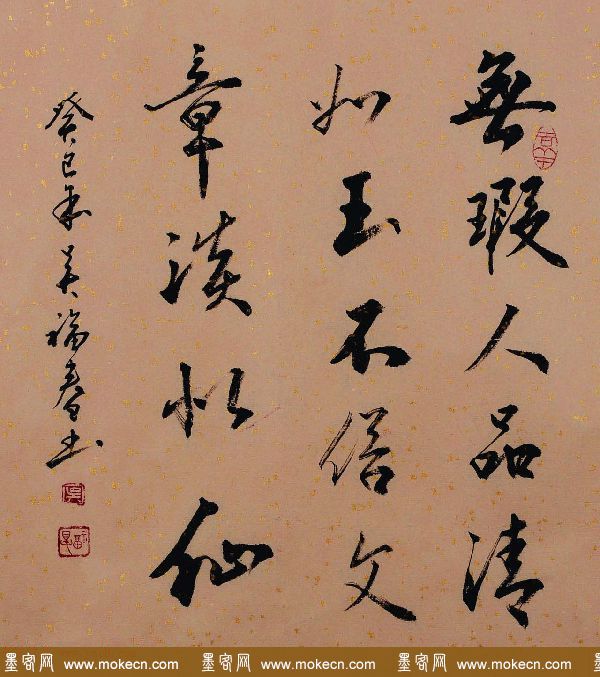 無瑕人品清
如玉不俗文
章淡似仙
癸巳年吴福春书
墨客网 www.mokecn.com 墨客网 www.mokecn.com 墨客网 www.mokecn.com 墨